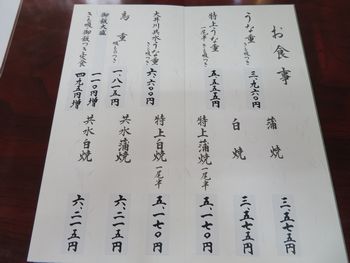 お食事
うな重 きも吸つき 三、九六〇円
特上うな重 一尾半 きも吸つき 五、五五五円
大井川共水うな重 きも吸つき 六、六〇〇円
鳥重 吸ものつき 一、八一五円
御飯大盛 一一〇円増
きも吸 御飯つき定食 四九五円増
蒲焼 三、五七五円
白焼 三、五七五円
特上蒲焼 一尾半 五、一七〇円
特上白焼 一尾半 五、一七〇円
共水蒲焼 六、二一五円
共水白焼 六、二一五円